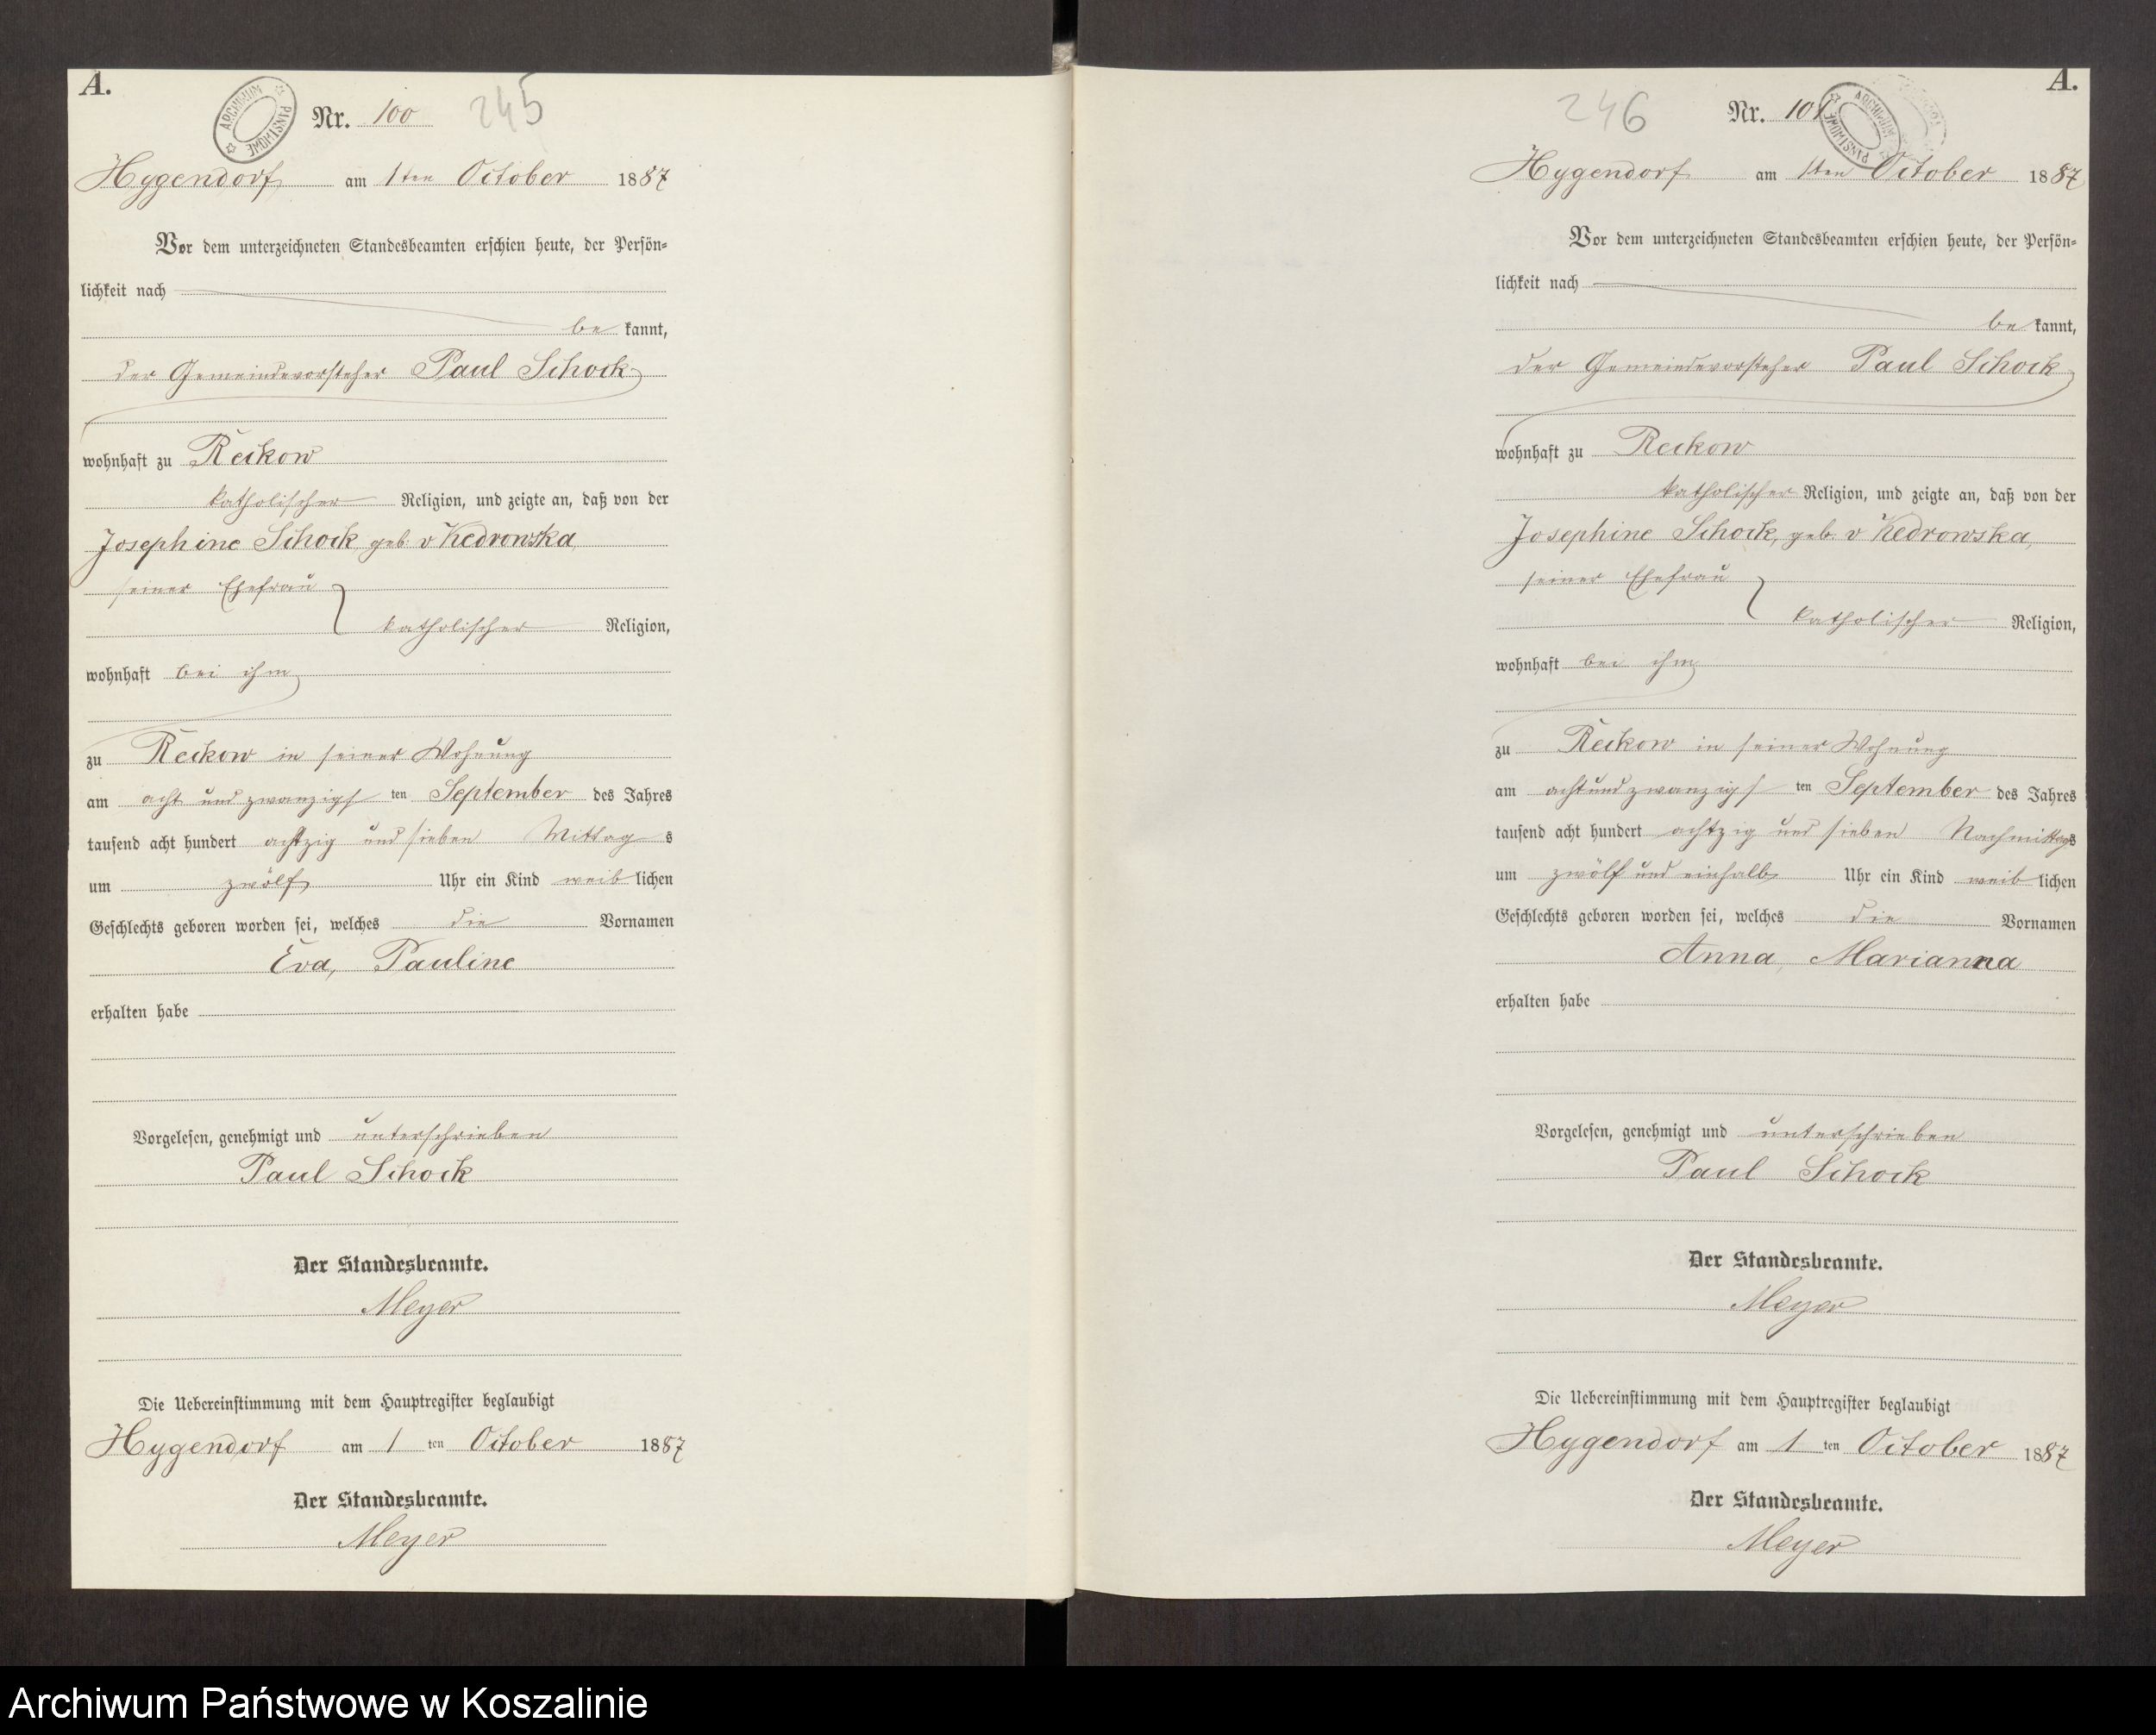 A.
ARCHIWUM PAŃSTWOWE
Nr. 100 245
Hygendorf am 1ten October 1887
Vor dem unterzeichneten Standesbeamten erschien heute, der Persön-
lichkeit nach
be kannt,
der Gemeindevorsteher Paul Schock
wohnhaft zu Reckow
katholischer Religion, und zeigte an, daß von der
Josephine Schock geb. v Kedrowska,
seiner Ehefrau
katholischer Religion,
wohnhaft bei ihm
zu Reckow in seiner Wohnung
am acht und zwanzigs ten September des Jahres
tausend acht hundert achtzig und sieben Mittag s
um zwölf Uhr ein Kind weib lichen
Geschlechts geboren worden sei, welches die Vornamen
Eva, Pauline
erhalten habe
Vorgelesen, genehmigt und unterschrieben
Paul Schock
Der Standesbeamte.
Meyer
Die Uebereinstimmung mit dem Hauptregister beglaubigt
Hygendorf am 1 ten October 1887
Der Standesbeamte.
Meyer
A.
246 Nr. 101
ARCHIWUM PAŃSTWOWE
Hygendorf am 1ten October 1887
Vor dem unterzeichneten Standesbeamten erschien heute, der Persön-
lichkeit nach
be kannt,
der Gemeindevorsteher Paul Schock
wohnhaft zu Reckow
katholischer Religion, und zeigte an, daß von der
Josephine Schock, geb. v Kedrowska,
seiner Ehefrau
katholischer Religion,
wohnhaft bei ihm
zu Reckow in seiner Wohnung
am achtundzwanzigs ten September des Jahres
tausend acht hundert achtzig und sieben Nachmittags
um zwölf und einhalb Uhr ein Kind weib lichen
Geschlechts geboren worden sei, welches die Vornamen
Anna, Marianna
erhalten habe
Vorgelesen, genehmigt und unterschrieben
Paul Schock
Der Standesbeamte.
Meyer
Die Uebereinstimmung mit dem Hauptregister beglaubigt
Hygendorf am 1 ten October 1887
Der Standesbeamte.
Meyer
Archiwum Państwowe w Koszalinie